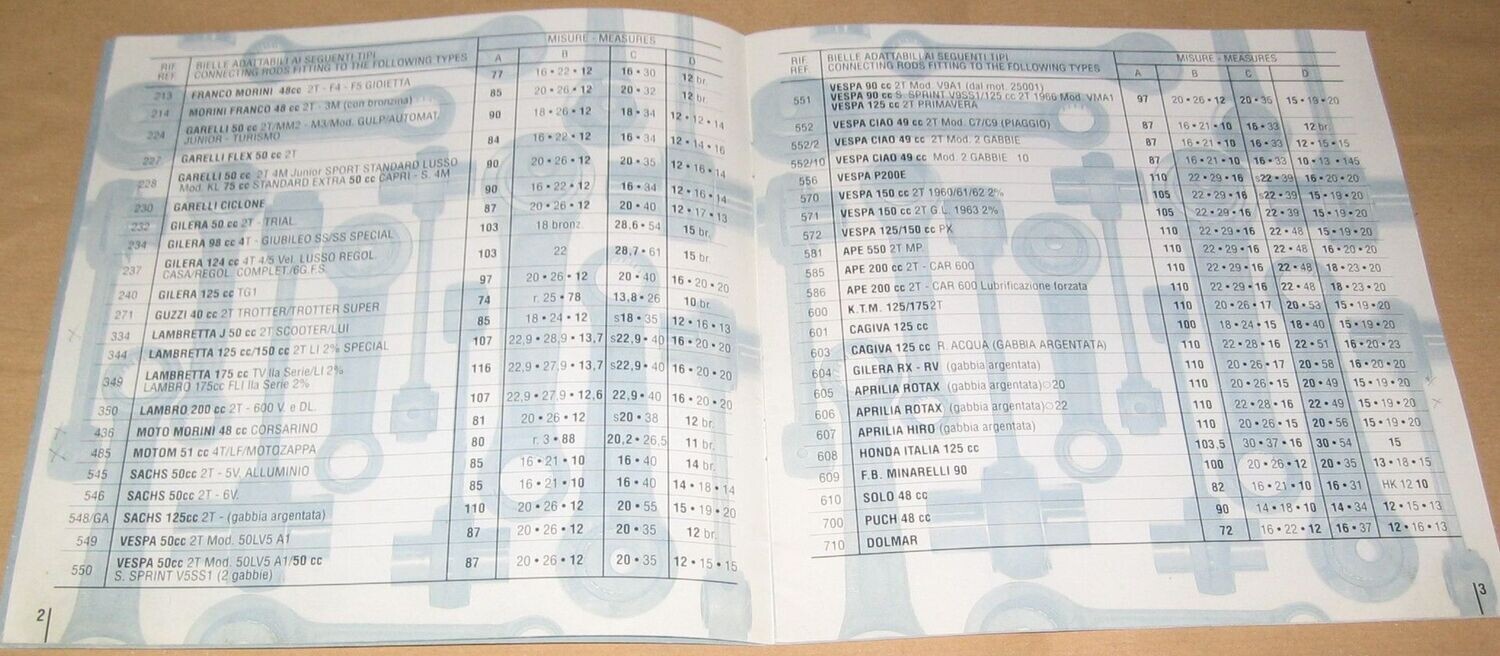 RIF. REF. BIELLE ADATTABILI AI SEGUENTI TIPI MISURE - MEASURES
CONNECTING RODS FITTING TO THE FOLLOWING TYPES A B C D
213 FRANCO MORINI 48cc 2T - F4 - F5 GIOIETTA 77 16 • 22 • 12 16 • 30 12 br.
214 MORINI FRANCO 48 cc 2T - 3M (con bronzina) 85 20 • 26 • 12 20 • 32 12 br.
224 GARELLI 50 cc 2T/MM2 - M3/Mod. GULP/AUTOMAT/ 90 18 • 26 • 12 18 • 34 12 • 12 • 14
JUNIOR - TURISMO
227 GARELLI FLEX 50 cc 2T 84 16 • 22 • 12 16 • 34 12 • 14 • 16
228 GARELLI 50 cc 2T 4M Junior SPORT STANDARD LUSSO 90 20 • 26 • 12 20 • 35 12 • 16 • 14
Mod. KL 75 cc STANDARD EXTRA 50 cc CAPRI - S. 4M
230 GARELLI CICLONE 90 16 • 22 • 12 16 • 34 12 • 16 • 14
232 GILERA 50 cc 2T - TRIAL 87 20 • 26 • 12 20 • 40 12 • 17 • 13
234 GILERA 98 cc 4T - GIUBILEO SS/SS SPECIAL 103 18 bronz. 28,6 • 54 15 br.
237 GILERA 124 cc 4T 4/5 Vel. LUSSO REGOL. 103 22 28,7 • 61 15 br.
CASA/REGOL. COMPLET./6G.F.S.
240 GILERA 125 cc TG1 97 20 • 26 • 12 20 • 40 16 • 20 • 20
271 GUZZI 40 cc 2T TROTTER/TROTTER SUPER 74 r. 25 • 78 13,8 • 26 10 br.
334 LAMBRETTA J 50 cc 2T SCOOTER/LUI 85 18 • 24 • 12 s18 • 35 12 • 16 • 13
344 LAMBRETTA 125 cc/150 cc 2T LI 2% SPECIAL 107 22,9 • 28,9 • 13,7 s22,9 • 40 16 • 20 • 20
349 LAMBRETTA 175 cc TV IIa Serie/LI 2% 116 22,9 • 27,9 • 13,7 s22,9 • 40 16 • 20 • 20
LAMBRO 175cc FLI IIa Serie 2%
350 LAMBRO 200 cc 2T - 600 V. e DL. 107 22,9 • 27,9 • 12,6 22,9 • 40 16 • 20 • 20
436 MOTO MORINI 48 cc CORSARINO 81 20 • 26 • 12 s20 • 38 12 br.
485 MOTOM 51 cc 4T/LF/MOTOZAPPA 80 r. 3 • 88 20,2 • 26,5 11 br.
545 SACHS 50cc 2T - 5V. ALLUMINIO 85 16 • 21 • 10 16 • 40 14 br.
546 SACHS 50cc 2T - 6V. 85 16 • 21 • 10 16 • 40 14 • 18 • 14
548/GA SACHS 125cc 2T - (gabbia argentata) 110 20 • 26 • 12 20 • 55 15 • 19 • 20
549 VESPA 50cc 2T Mod. 50LV5 A1 87 20 • 26 • 12 20 • 35 12 br.
550 VESPA 50cc 2T Mod. 50LV5 A1/50 cc 87 20 • 26 • 12 20 • 35 12 • 15 • 15
S. SPRINT V5SS1 (2 gabbie)
2
RIF. REF. BIELLE ADATTABILI AI SEGUENTI TIPI MISURE - MEASURES
CONNECTING RODS FITTING TO THE FOLLOWING TYPES A B C D
VESPA 90 cc 2T Mod. V9A1 (dal mot. 25001)
551 VESPA 90 cc S. SPRINT V9SS1/125 cc 2T 1966 Mod. VMA1 97 20 • 26 • 12 20 • 35 15 • 19 • 20
VESPA 125 cc 2T PRIMAVERA
552 VESPA CIAO 49 cc 2T Mod. C7/C9 (PIAGGIO) 87 16 • 21 • 10 16 • 33 12 br.
552/2 VESPA CIAO 49 cc 2T Mod. 2 GABBIE 87 16 • 21 • 10 16 • 33 12 • 15 • 15
552/10 VESPA CIAO 49 cc Mod. 2 GABBIE 10 87 16 • 21 • 10 16 • 33 10 • 13 • 145
556 VESPA P200E 110 22 • 29 • 16 s22 • 39 16 • 20 • 20
570 VESPA 150 cc 2T 1960/61/62 2% 105 22 • 29 • 16 s22 • 39 15 • 19 • 20
571 VESPA 150 cc 2T G.L. 1963 2% 105 22 • 29 • 16 22 • 39 15 • 19 • 20
572 VESPA 125/150 cc PX 110 22 • 29 • 16 22 • 48 15 • 19 • 20
581 APE 550 2T MP 110 22 • 29 • 16 22 • 48 16 • 20 • 20
585 APE 200 cc 2T - CAR 600 110 22 • 29 • 16 22 • 48 18 • 23 • 20
586 APE 200 cc 2T - CAR 600 Lubrificazione forzata 110 22 • 29 • 16 22 • 48 18 • 23 • 20
600 K.T.M. 125/175 2T 110 20 • 26 • 17 20 • 53 15 • 19 • 20
601 CAGIVA 125 cc 100 18 • 24 • 15 18 • 40 15 • 19 • 20
603 CAGIVA 125 cc R. ACQUA (GABBIA ARGENTATA) 110 22 • 28 • 16 22 • 51 16 • 20 • 23
604 GILERA RX - RV (gabbia argentata) 110 20 • 26 • 17 20 • 58 16 • 20 • 20
605 APRILIA ROTAX (gabbia argentata) 20 110 20 • 26 • 15 20 • 49 15 • 19 • 20
606 APRILIA ROTAX (gabbia argentata) 22 110 22 • 28 • 16 22 • 49 15 • 19 • 20
607 APRILIA HIRO (gabbia argentata) 110 20 • 26 • 15 20 • 56 15 • 19 • 20
608 HONDA ITALIA 125 cc 103,5 30 • 37 • 16 30 • 54 15
609 F.B. MINARELLI 90 100 20 • 26 • 12 20 • 35 13 • 18 • 15
610 SOLO 48 cc 82 16 • 21 • 10 16 • 31 HK 12 10
700 PUCH 48 cc 90 14 • 18 • 10 14 • 34 12 • 15 • 13
710 DOLMAR 72 16 • 22 • 12 16 • 37 12 • 16 • 13
3